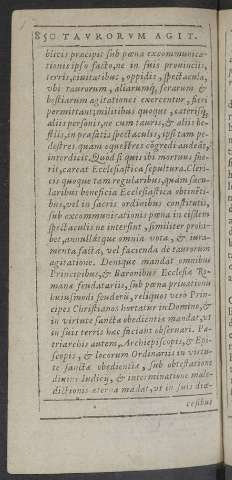 850 TAVRORVM AGIT.
blicis precipit sub pœna excommunica-
tionis ipso facto, ne in suis prouinciis,
terris, ciuitatibus, oppidis, spectacula,
vbi taurorum, aliarumq́; ferarum &
bestiarum agitationes exercentur, fieri
permittant; militibus quoque, cæterisq́;
aliis personis, ne cum tauris, & aliis be-
stiis, in præfatis spectaculis, ipsi tam pe-
destres quam equestres cōgredi audeāt,
interdicit. Quod si quis ibi mortuus fue-
rit, careat Ecclesiastica sepultura. Cleri-
cis quoque tam regularibus, quam secu-
laribus beneficia Ecclesiastica obtinēti-
bus, vel in sacris ordinibus constitutis,
sub excommunicationis pœna in eisdem
spectaculis ne intersint, similiter prohi-
bet, annullátque omnia vota, & iura-
menta facta, vel facienda de taurorum
agitatione. Denique mandat omnibus
Principibus, & Baronibus Ecclesiæ Ro-
manæ feudatariis, sub pœna priuationis
huiusmodi feudorū, reliquos vero Prin-
cipes Christianos hortatur in Domino, &
in virtute sanctæ obedientiæ mandat, vt
in suis terris hæc faciant obseruari. Pa-
triarchis autem, Archiepiscopis, & Epi-
scopis, & locorum Ordinariis in virtu-
te sanctæ obedientiæ, sub obtestatione
diuini Iudicij, & interminatione male-
dictionis æternæ mādat, vt in suis diœ-
cesibus